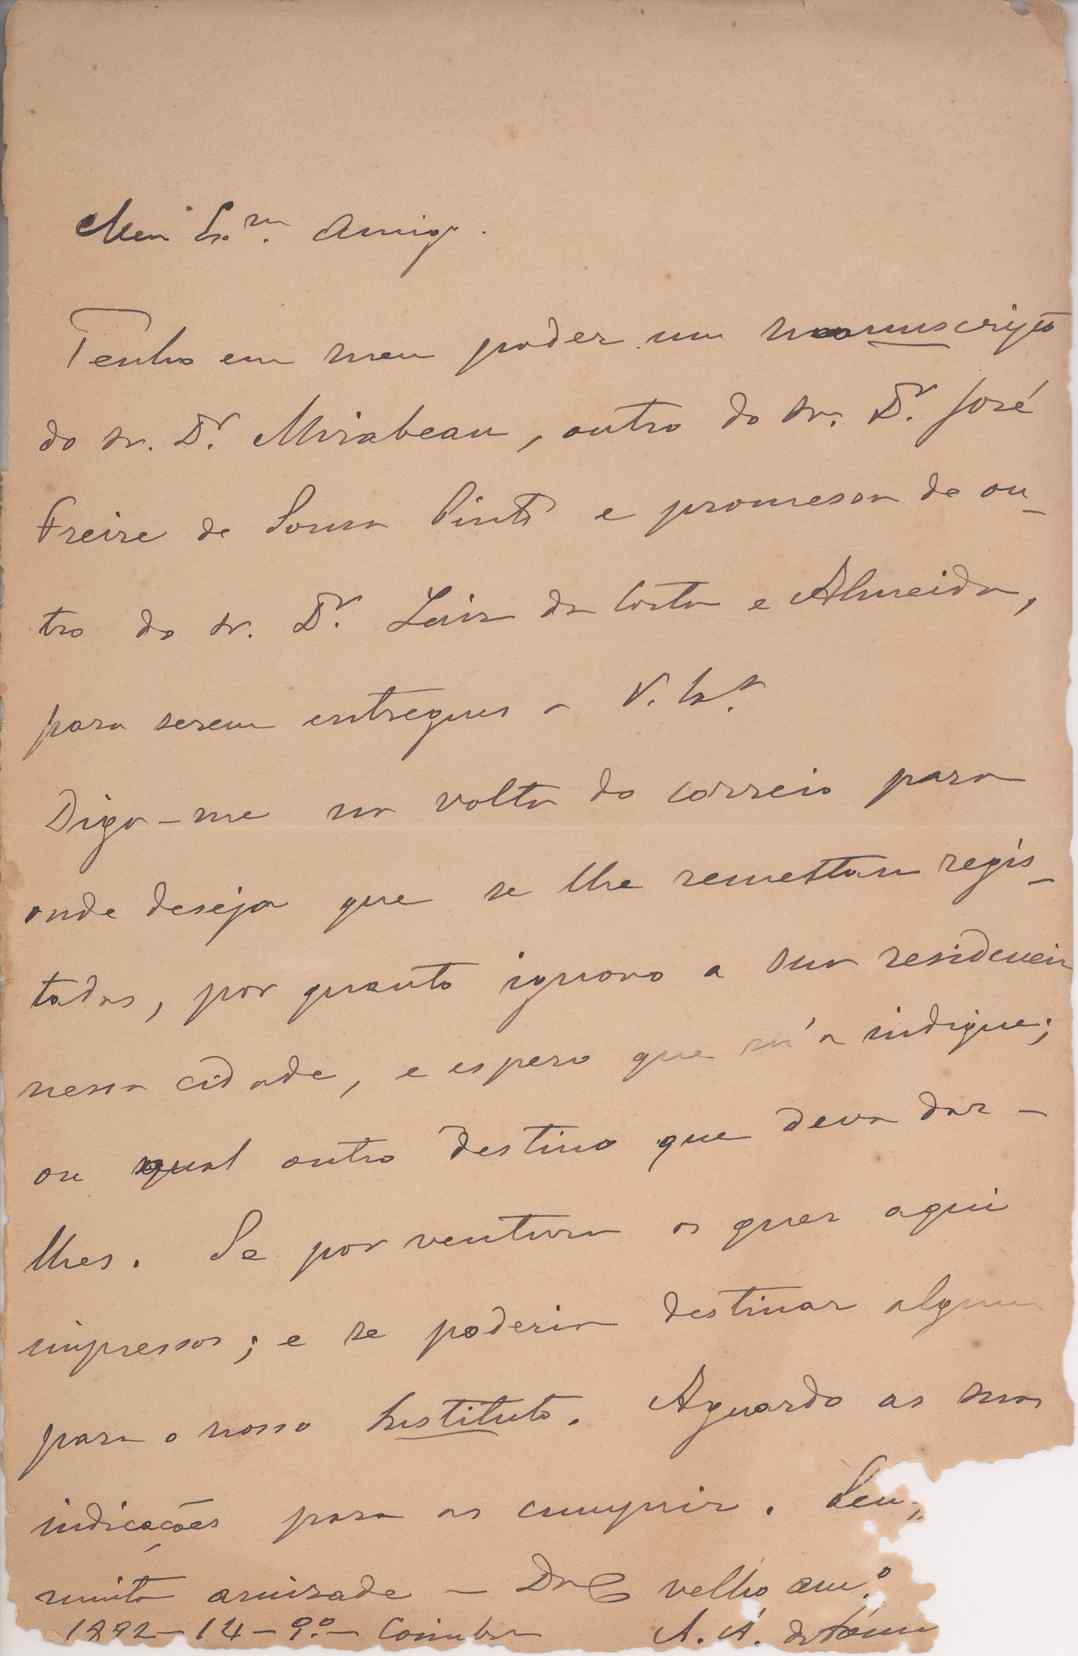 Meu Ex.mo Amigo.
Tenho em meu poder um manuscripto
do sr. Dr. Mirabeau, outro do sr. Dr. José
Freire de Sousa Pinto e promessa de ou-
tro do sr. Dr. Luiz da Costa e Almeida,
para serem entregues a V. Ex.a
Diga-me na volta do correio para
onde deseja que se lhe remettam regis-
tados, por quanto ignoro a sua residencia
nessa cidade, e espero que m'a indique;
ou qual outro destino que deva dar-
lhes. Se por ventura os quer aqui
impressos; e se poderia destinar algum
para o nosso Instituto. Aguardo as suas
indicações para as cumprir. Seu,
muita amizade — velho am.o
1892-14-9.o- Coimbra A. A. da